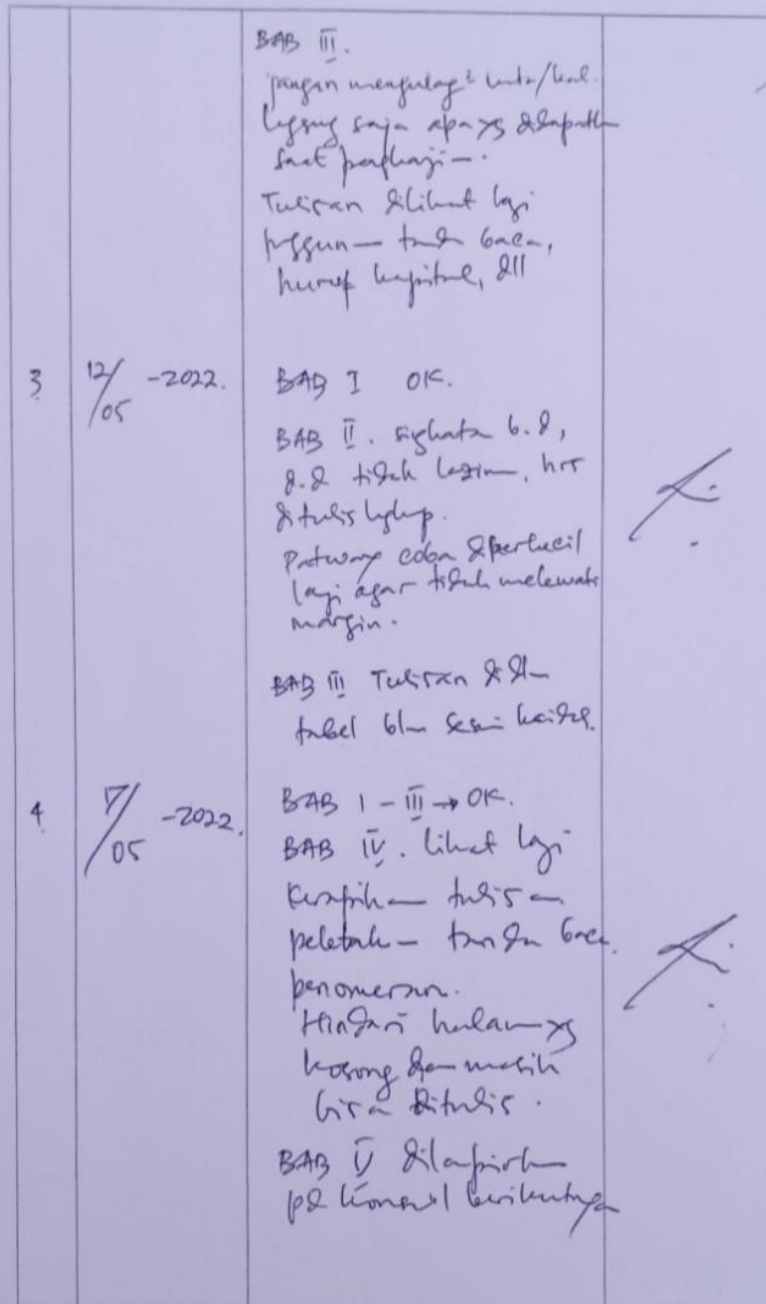 BAB III.
jangan mengulag² kata/kal.
lagsug saja apa yg didapatk
saat pengkaji-.
Tulisan dilihat lagi
pggun- tanda baca,
huruf kapital, dll
3 12/05 -2022. BAB I OK.
BAB II. sigkata b.d,
d.d tidak lazim, hrs
ditulis lgkp.
Patway coba diperkecil
lagi agar tidak melewati
margin.
BAB III Tulisan di dlm
tabel blm sesuai kaidah.
4. /05 -2022. BAB I - III → OK.
BAB IV. lihat lagi
kerapihan tulisan
peletak- tanda baca.
penomeran.
Hindari halam- yg
kosong dan masih
bisa ditulis.
BAB V dilapirk-
pd konsul berikutnya